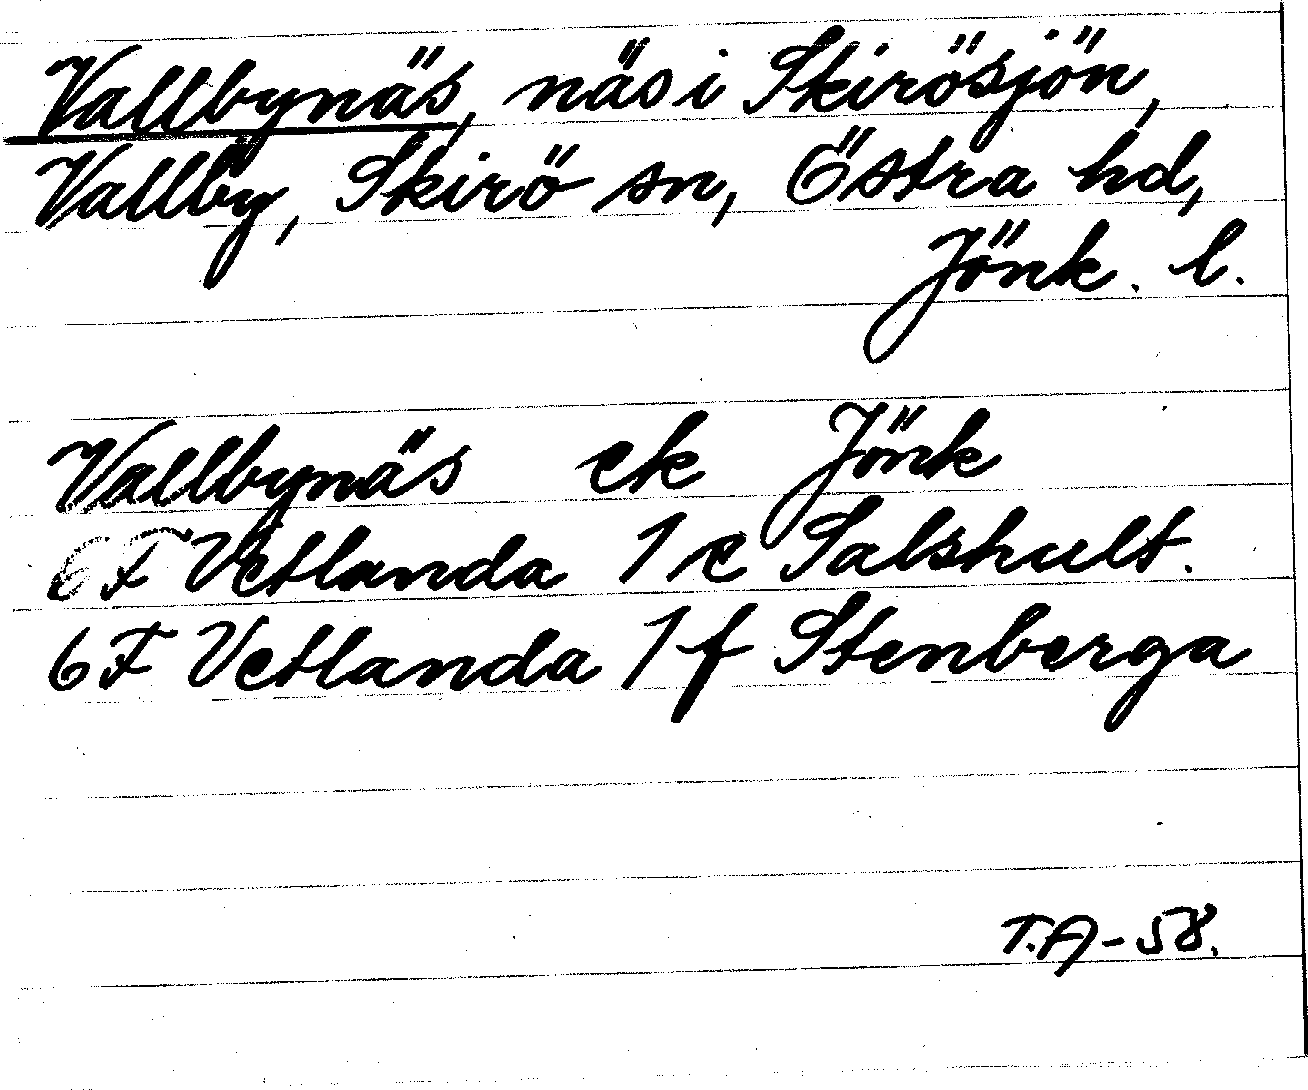 Vallbynäs, näs i Skirösjön,
Vallby, Skirö sn, Östra hd,
Jönk. l.
Vallbynäs ek Jönk
6F Vetlanda 1 e Salshult.
6F Vetlanda 1 f Stenberga
T.A-58.